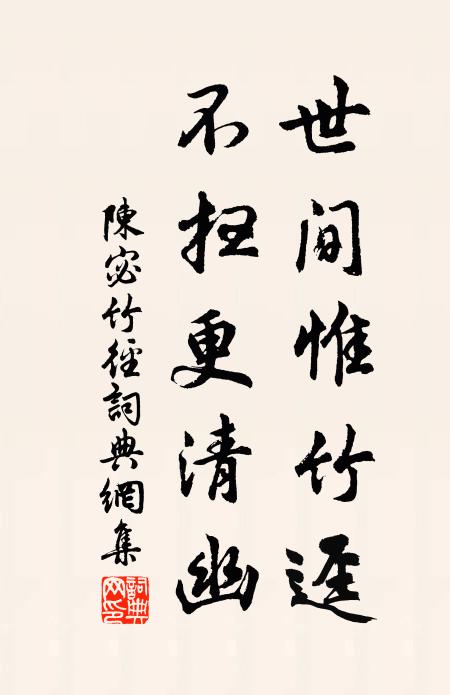 世间惟竹逕
不掃更清幽
陳宓竹徑詞典網集
詞典网印